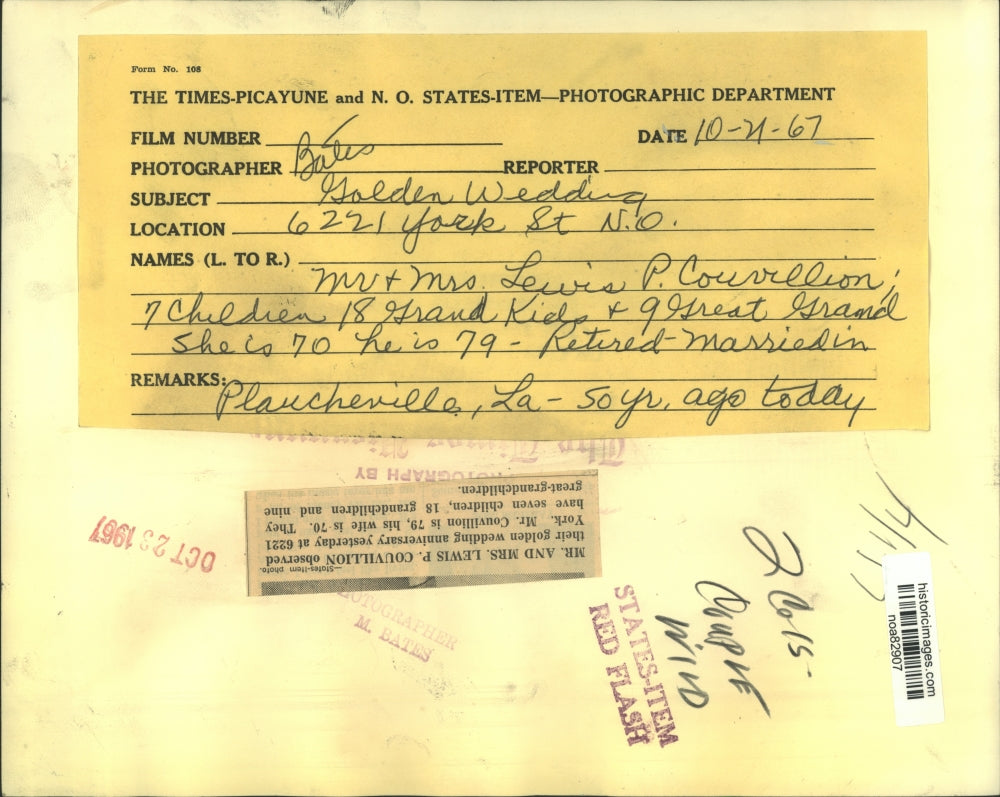 Form No. 108
THE TIMES-PICAYUNE and N. O. STATES-ITEM—PHOTOGRAPHIC DEPARTMENT
FILM NUMBER
DATE 10-21-67
PHOTOGRAPHER Bates REPORTER
SUBJECT Golden Wedding
LOCATION 6221 York St N.O.
NAMES (L. TO R.)
Mr + Mrs. Lewis P. Couvillion,
7 Children 18 Grand Kids + 9 Great Grand
She is 70 he is 79 - Retired - Married in
REMARKS:
Plaucheville, La - 50 yr. ago today
The Times-Picayune
PHOTOGRAPH BY
—States-Item photo.
MR. AND MRS. LEWIS P. COUVILLION observed
their golden wedding anniversary yesterday at 6221
York. Mr. Couvillion is 79, his wife is 70. They
have seven children, 18 grandchildren and nine
great-grandchildren.
OCT 23 1967
PHOTOGRAPHER
M. BATES
STATES-ITEM
RED FLASH
2 Cols-
Couple
historicimages.com
noa82907